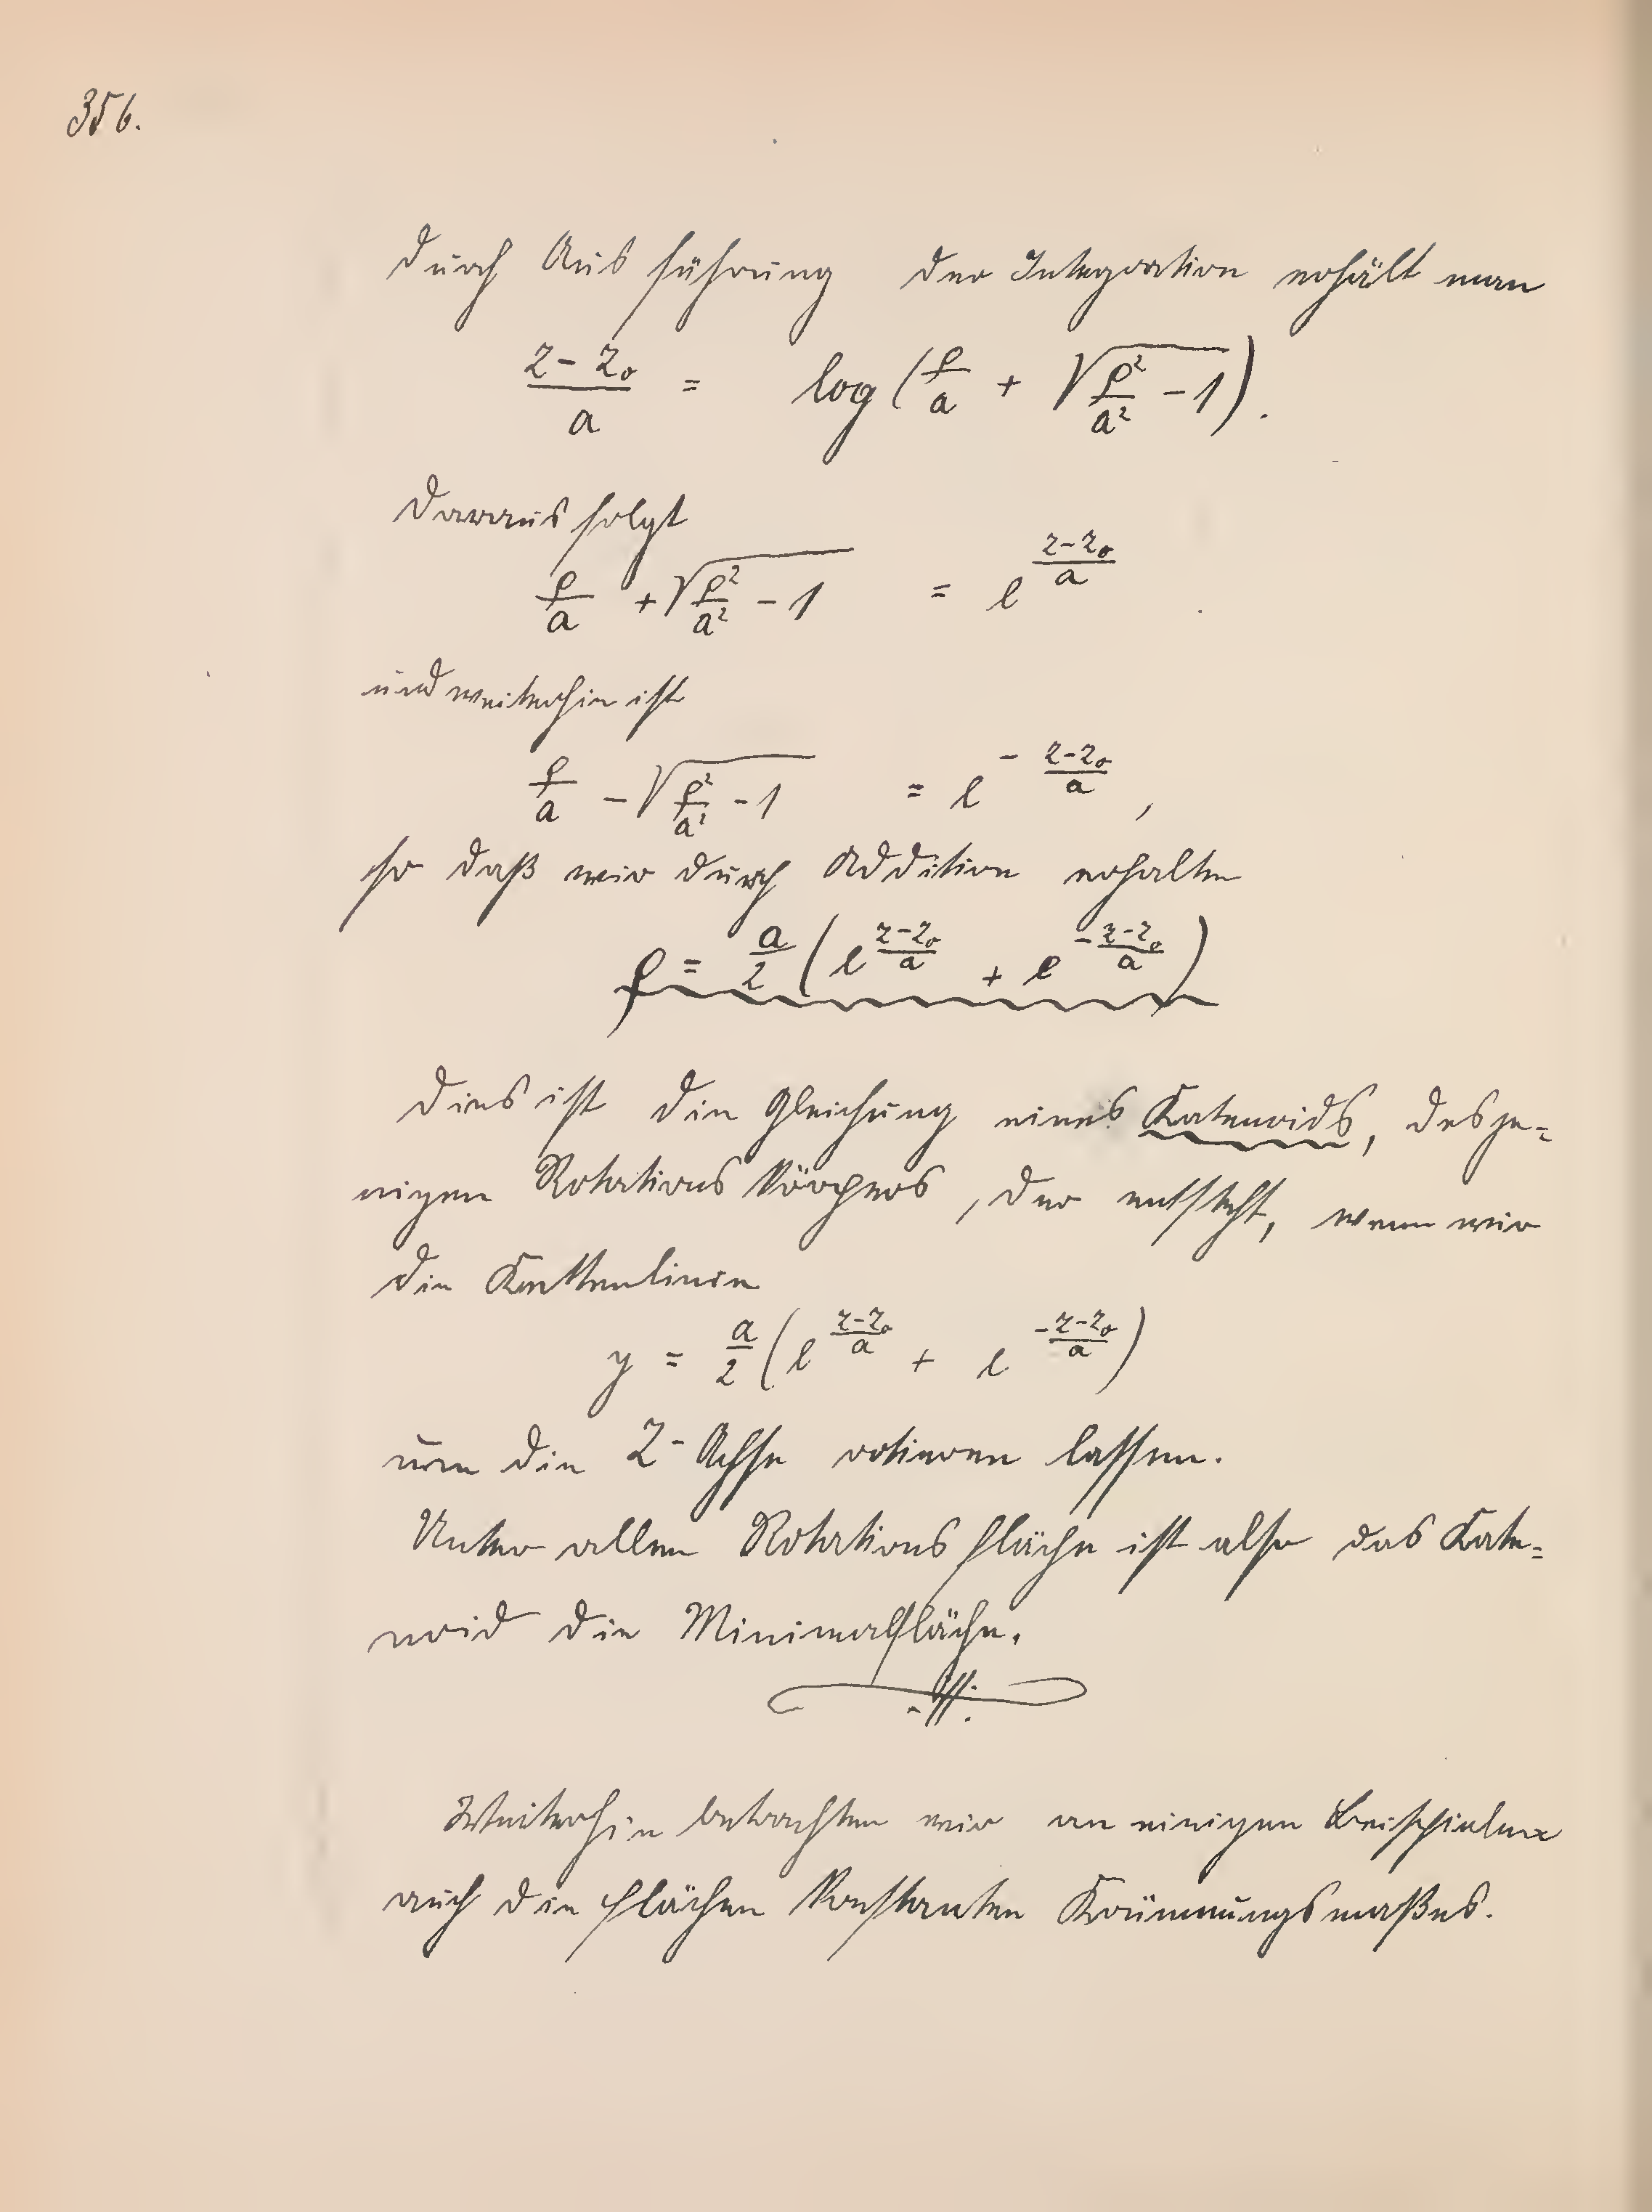 356.
Durch Ausführung der Integration erhält man
$\frac{z-z_0}{a} = \log\left(\frac{\rho}{a} + \sqrt{\frac{\rho^2}{a^2} - 1}\right).$
Daraus folgt
$\frac{\rho}{a} + \sqrt{\frac{\rho^2}{a^2} - 1} = e^{\frac{z-z_0}{a}}$
und weiterhin ist
$\frac{\rho}{a} - \sqrt{\frac{\rho^2}{a^2} - 1} = e^{-\frac{z-z_0}{a}},$
so daß wir durch Addition erhalten
$\rho = \frac{a}{2}\left(e^{\frac{z-z_0}{a}} + e^{-\frac{z-z_0}{a}}\right)$
Dies ist die Gleichung eines Katenoids, desje=
nigen Rotationskörpers, der entsteht, wenn wir
die Kettenlinie
$y = \frac{a}{2}\left(e^{\frac{z-z_0}{a}} + e^{-\frac{z-z_0}{a}}\right)$
um die Z-Achse rotieren lassen.
Unter allen Rotationsfläche ist also das Kate=
noid die Minimalfläche.
Weiterhin betrachten wir an einigen Beispielen
auch die Flächen konstanten Krümmungsmaßes.